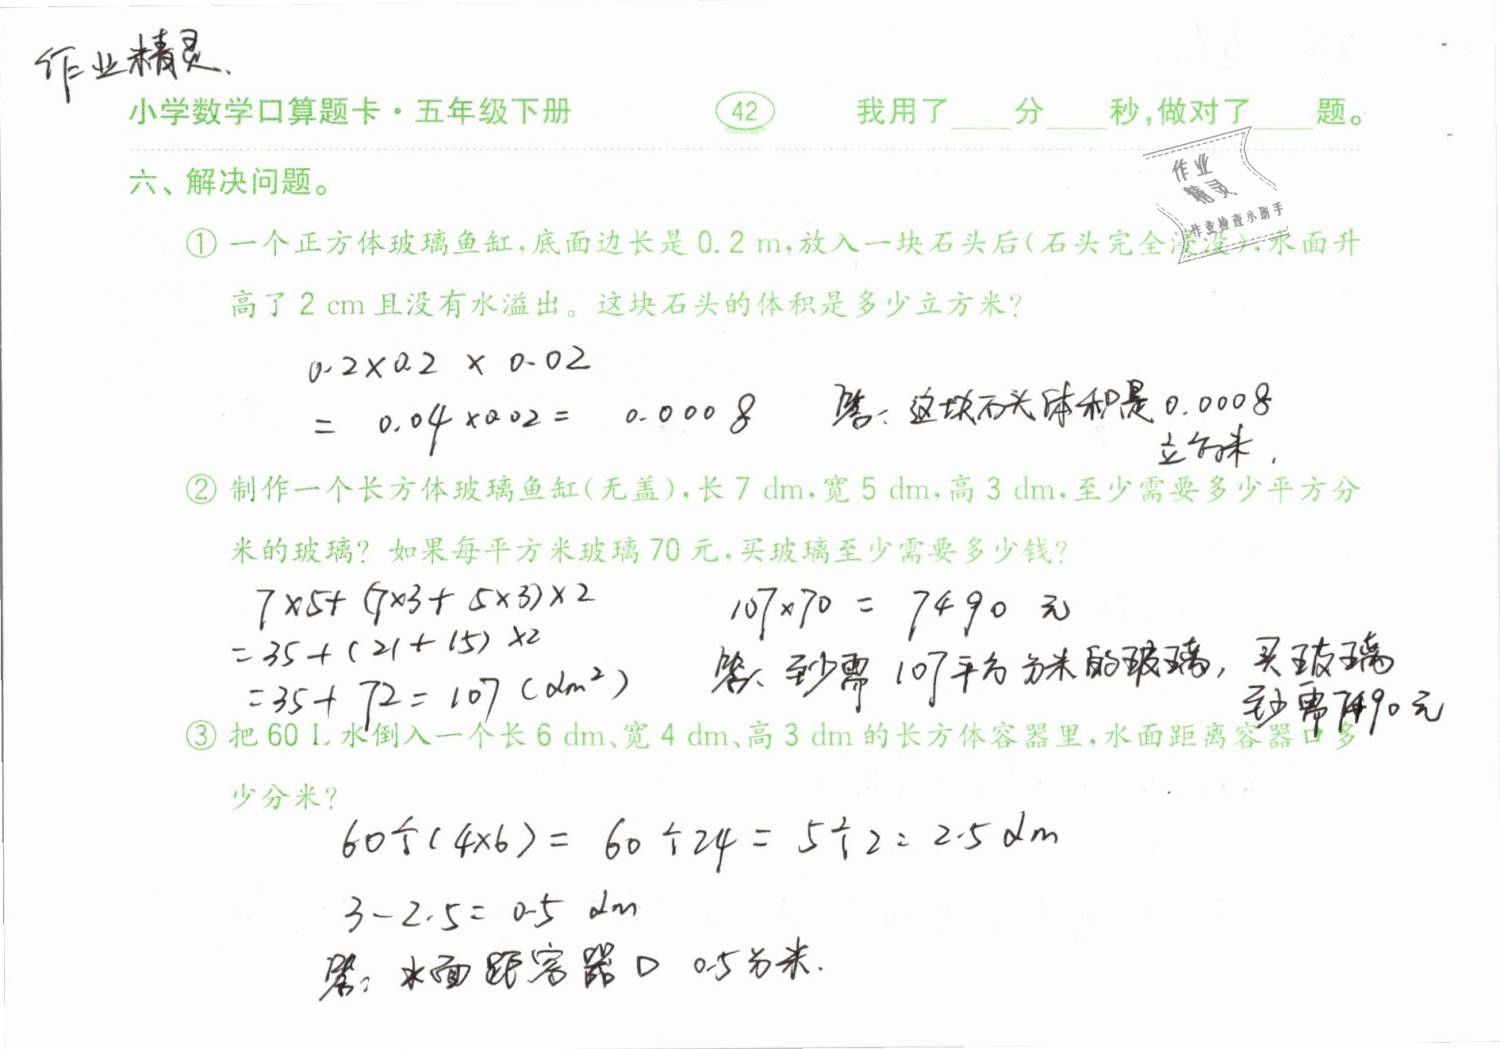 作业精灵.
小学数学口算题卡·五年级下册 42 我用了____分____秒,做对了____题。
六、解决问题。
① 一个正方体玻璃鱼缸,底面边长是0.2 m,放入一块石头后(石头完全浸没),水面升
作业
精灵
作业检查小助手
高了2 cm且没有水溢出。这块石头的体积是多少立方米?
0.2×0.2×0.02
= 0.04×0.02= 0.0008 答:这块石头体积是0.0008
立方米.
② 制作一个长方体玻璃鱼缸(无盖),长7 dm,宽5 dm,高3 dm,至少需要多少平方分
米的玻璃? 如果每平方米玻璃70元,买玻璃至少需要多少钱?
7×5+(7×3+5×3)×2 107×70 = 7490 元
=35+(21+15)×2
=35+72=107(dm²) 答:至少需107平方分米的玻璃,买玻璃
至少需7490元
③ 把60 L水倒入一个长6 dm、宽4 dm、高3 dm的长方体容器里,水面距离容器口多
少分米?
60÷(4×6)= 60÷24= 5÷2=2.5dm
3-2.5=0.5 dm
答:水面距容器口0.5分米.